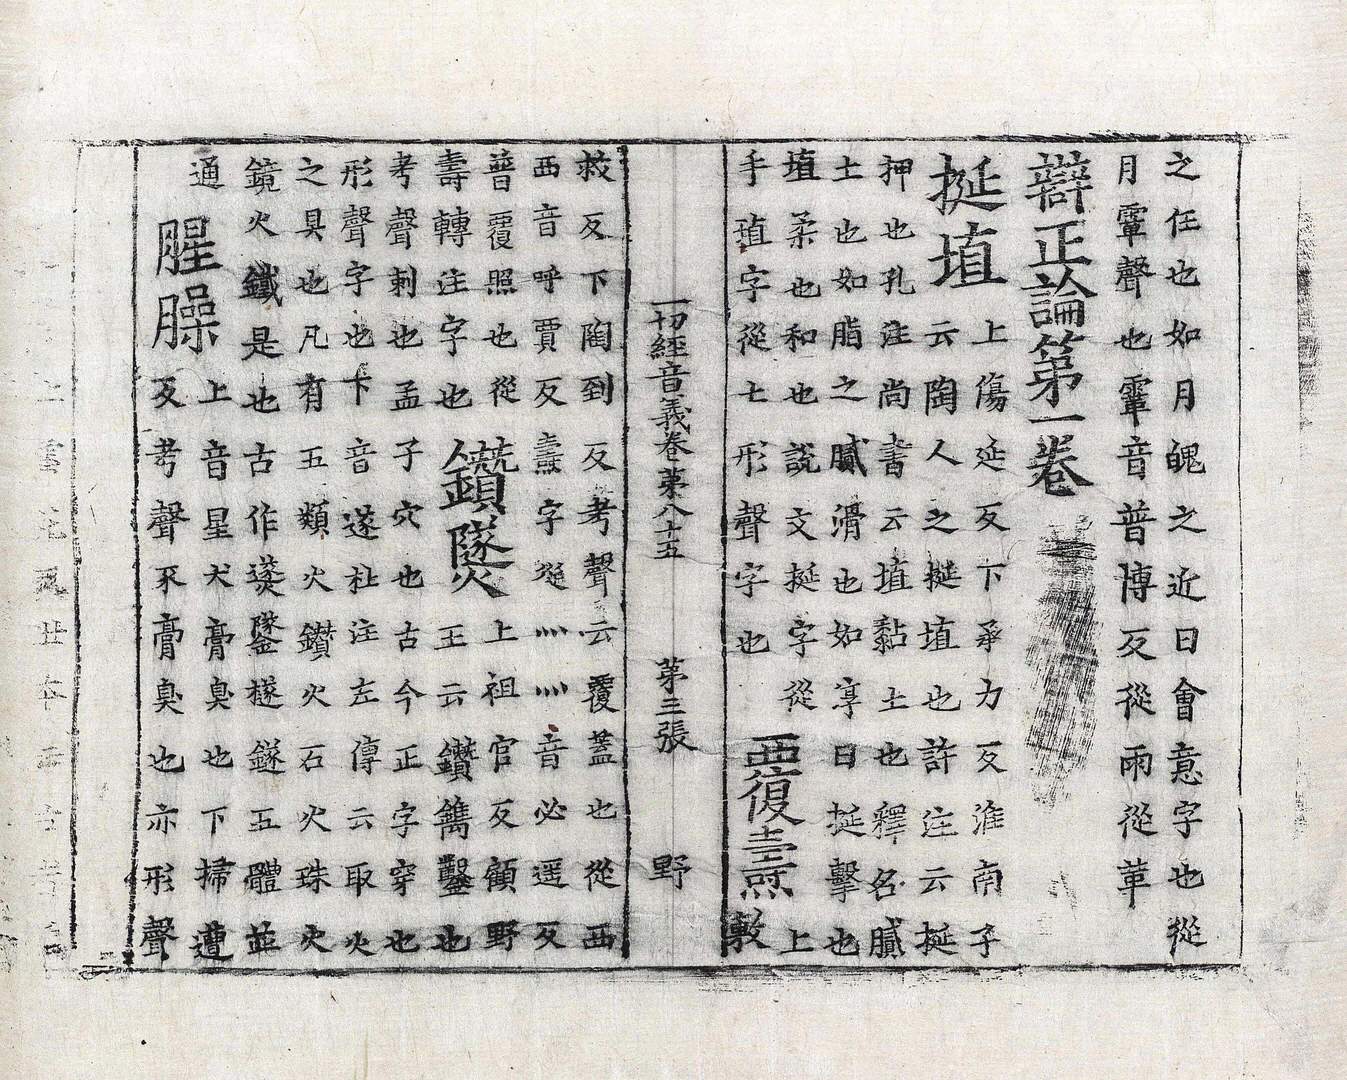 之任也如月魄之近日會意字也從
月䨣聲也䨣音普博反從雨從革
辯正論第一卷
挻埴 上傷延反下承力反淮南子
云陶人之挻埴也許注云挻
押也孔注尚書云埴黏土也釋名膩
土也如脂之膩滑也如淳曰挻擊也
埴柔也和也說文挻字從
手埴字從土形聲字也 覆燾 上敷
一切經音義卷第八十五 第三張 野
救反下陶到反考聲云覆蓋也從襾
襾音呼賈反燾字從灬灬音必遥反
普覆照也從
壽轉注字也 鑽燧 上祖官反顧野
王云鑽鐫鑿也
考聲刺也孟子穴也古今正字穿也
形聲字也下音遂杜注左傳云取火
之具也凡有五類火鑽火石火珠火
鏡火鐵是也古作㸂䥙檖鐩五體並
通 腥臊 上音星犬膏臭也下掃遭
反考聲豕膏臭也亦形聲